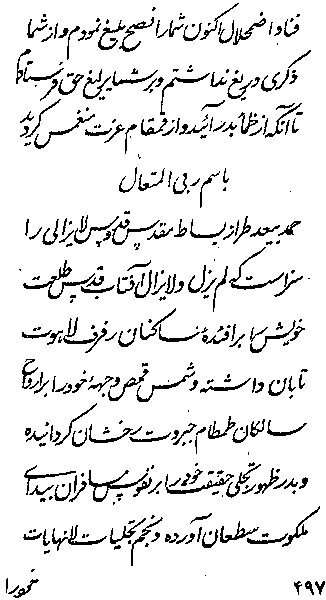 فنا و اضمحلال اکنون شما را نصح بلیغ نمودم و از شما
ذکری دریغ نداشتم و بر شما بدایع حق فرستادم
تا آنکه از ظما بدر آئید و از قمقام عزت منغمس گردید
باسم ربی المتعال
حمد بیعد طراز بساط مقدس قدوس لایزالی را
سزاست که لم یزل و لایزال آفتاب قدس طلعت
خویش را بر افئدهٔ ساکنان رفرف لاهوت
تابان داشته و شمس قمص وجههٔ خود را بر ارواح
سالکان طمطام جبروت رخشان گردانیده
و بدر ظهور تجلی حقیقت خود را بر نفوس مسافران بیدای
ملکوت سطعان آورده و نجم تجلیات لانهایات
۴۹۷
خود را